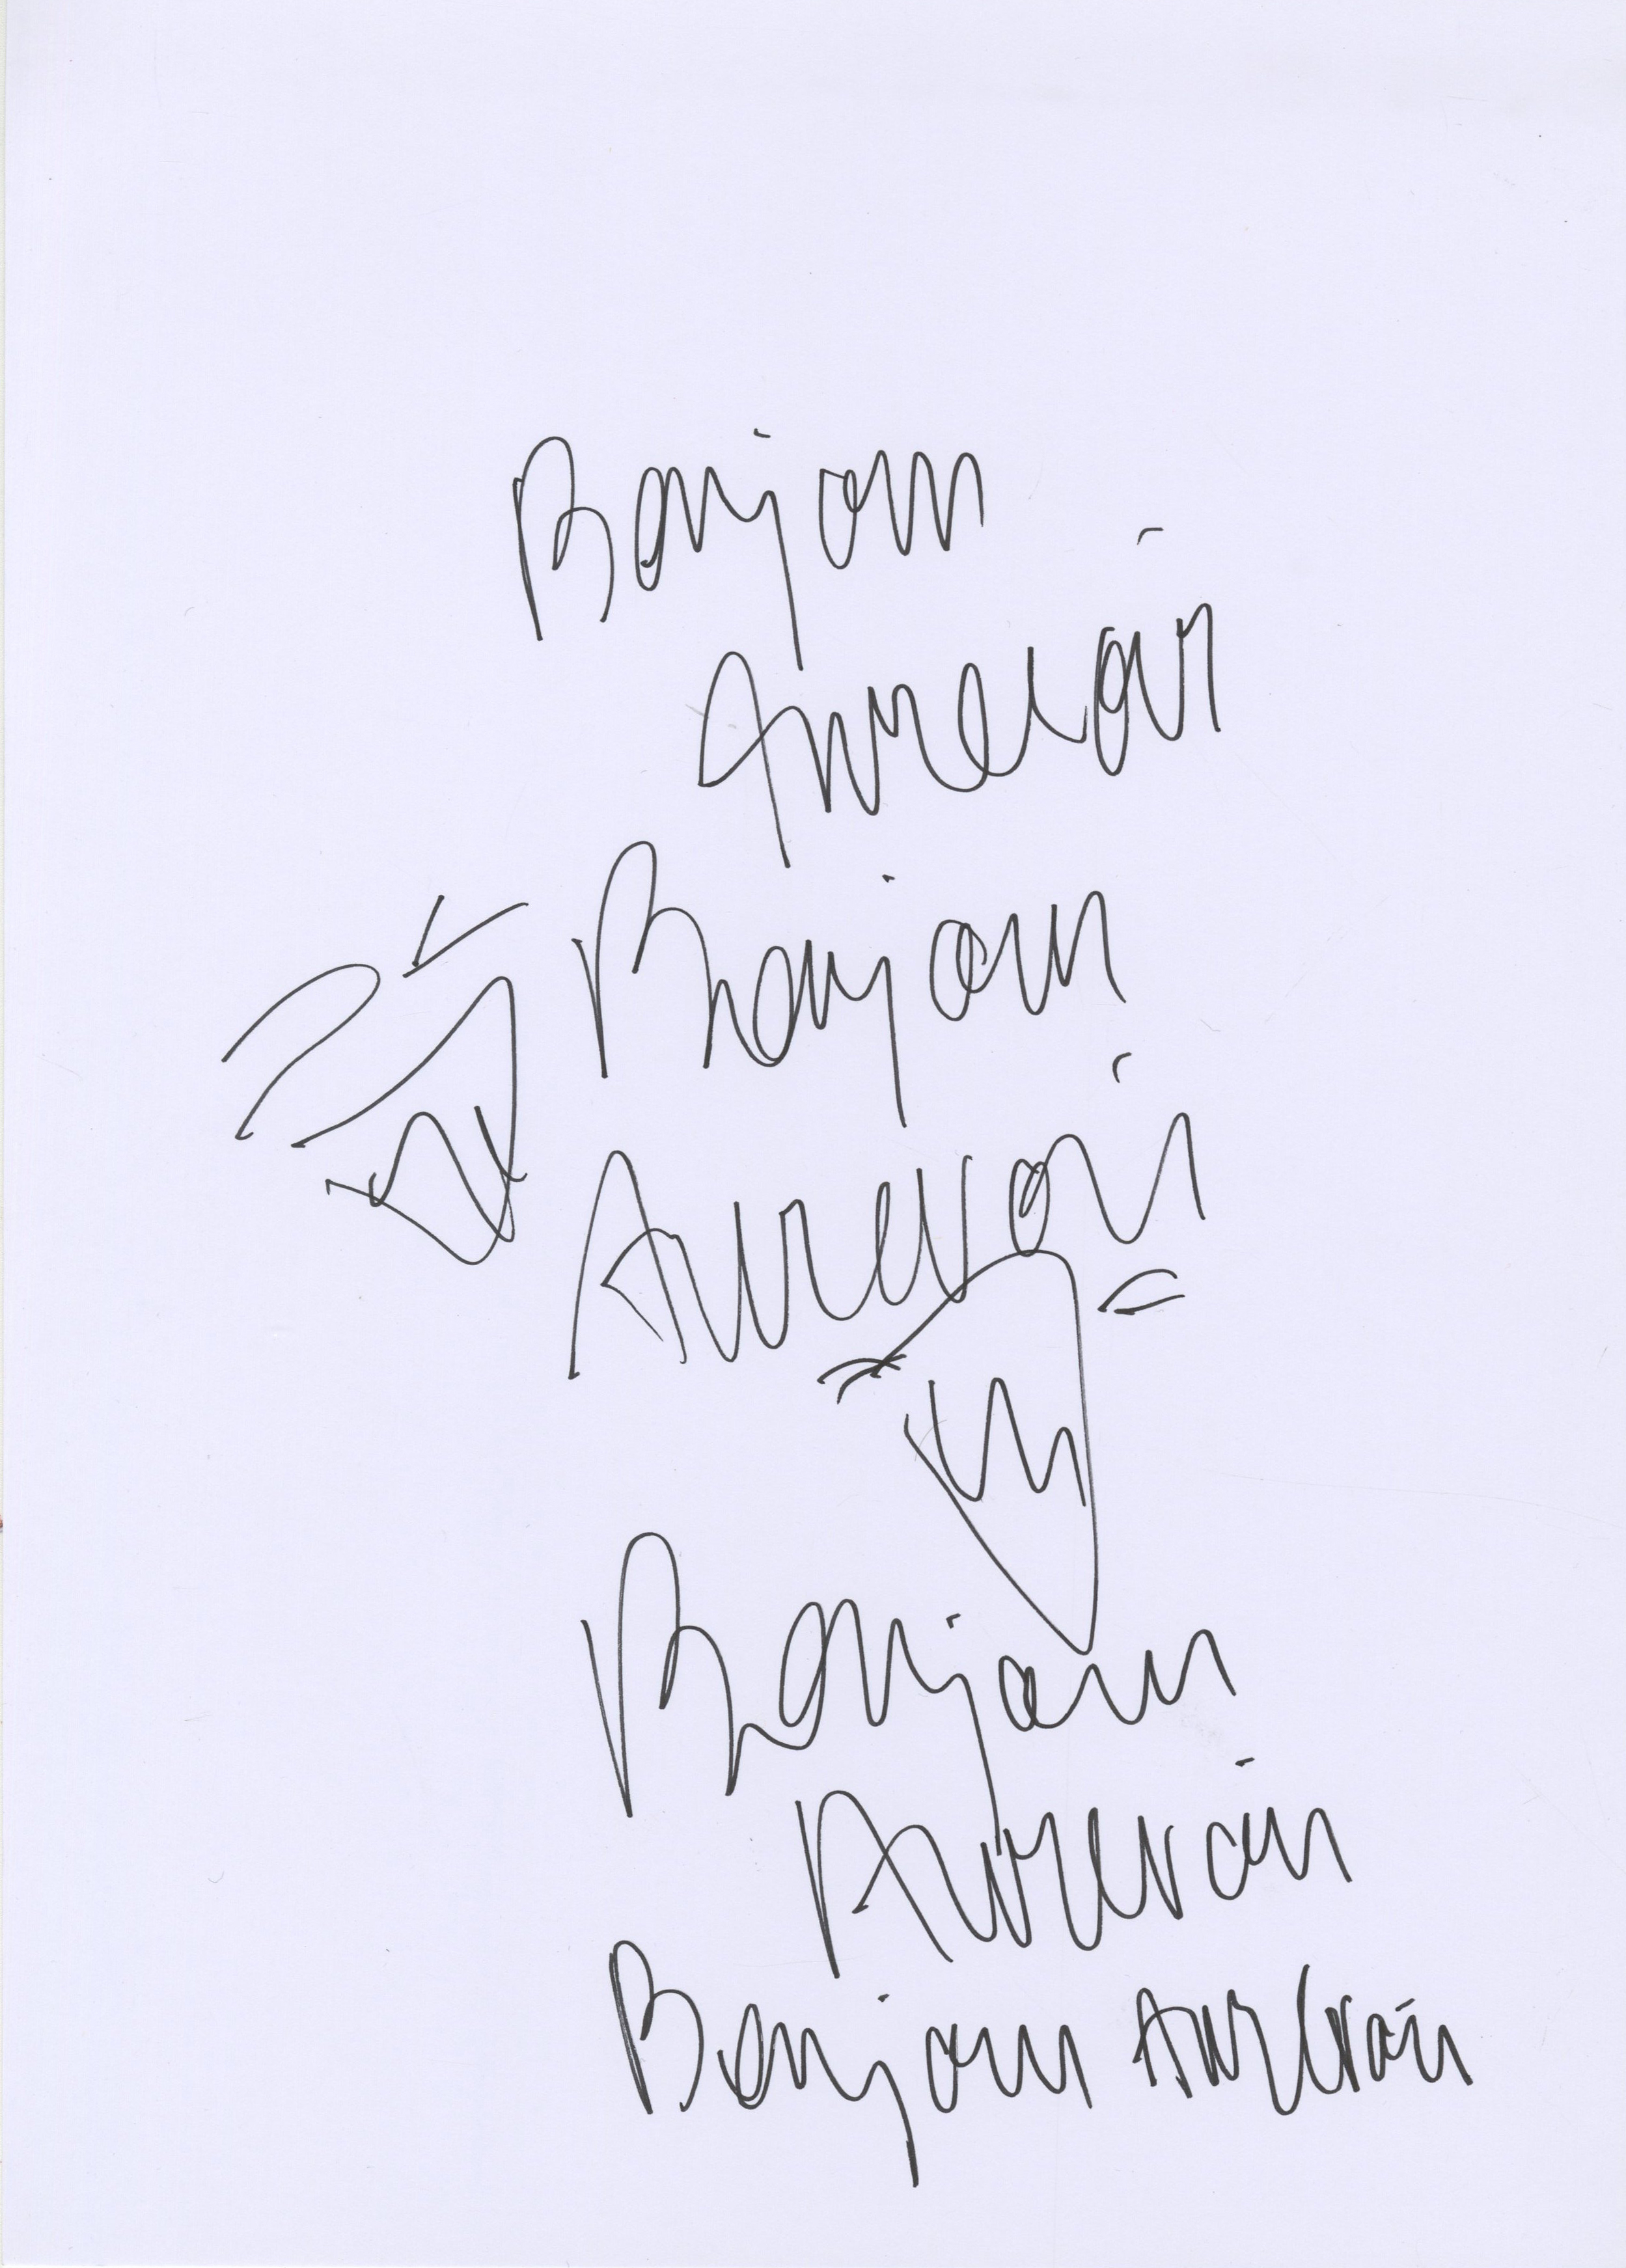 Bonjour
Aurevoir
Bonjour
Aurevoir
Bonjour
Aurevoir
Bonjour Aurevoir